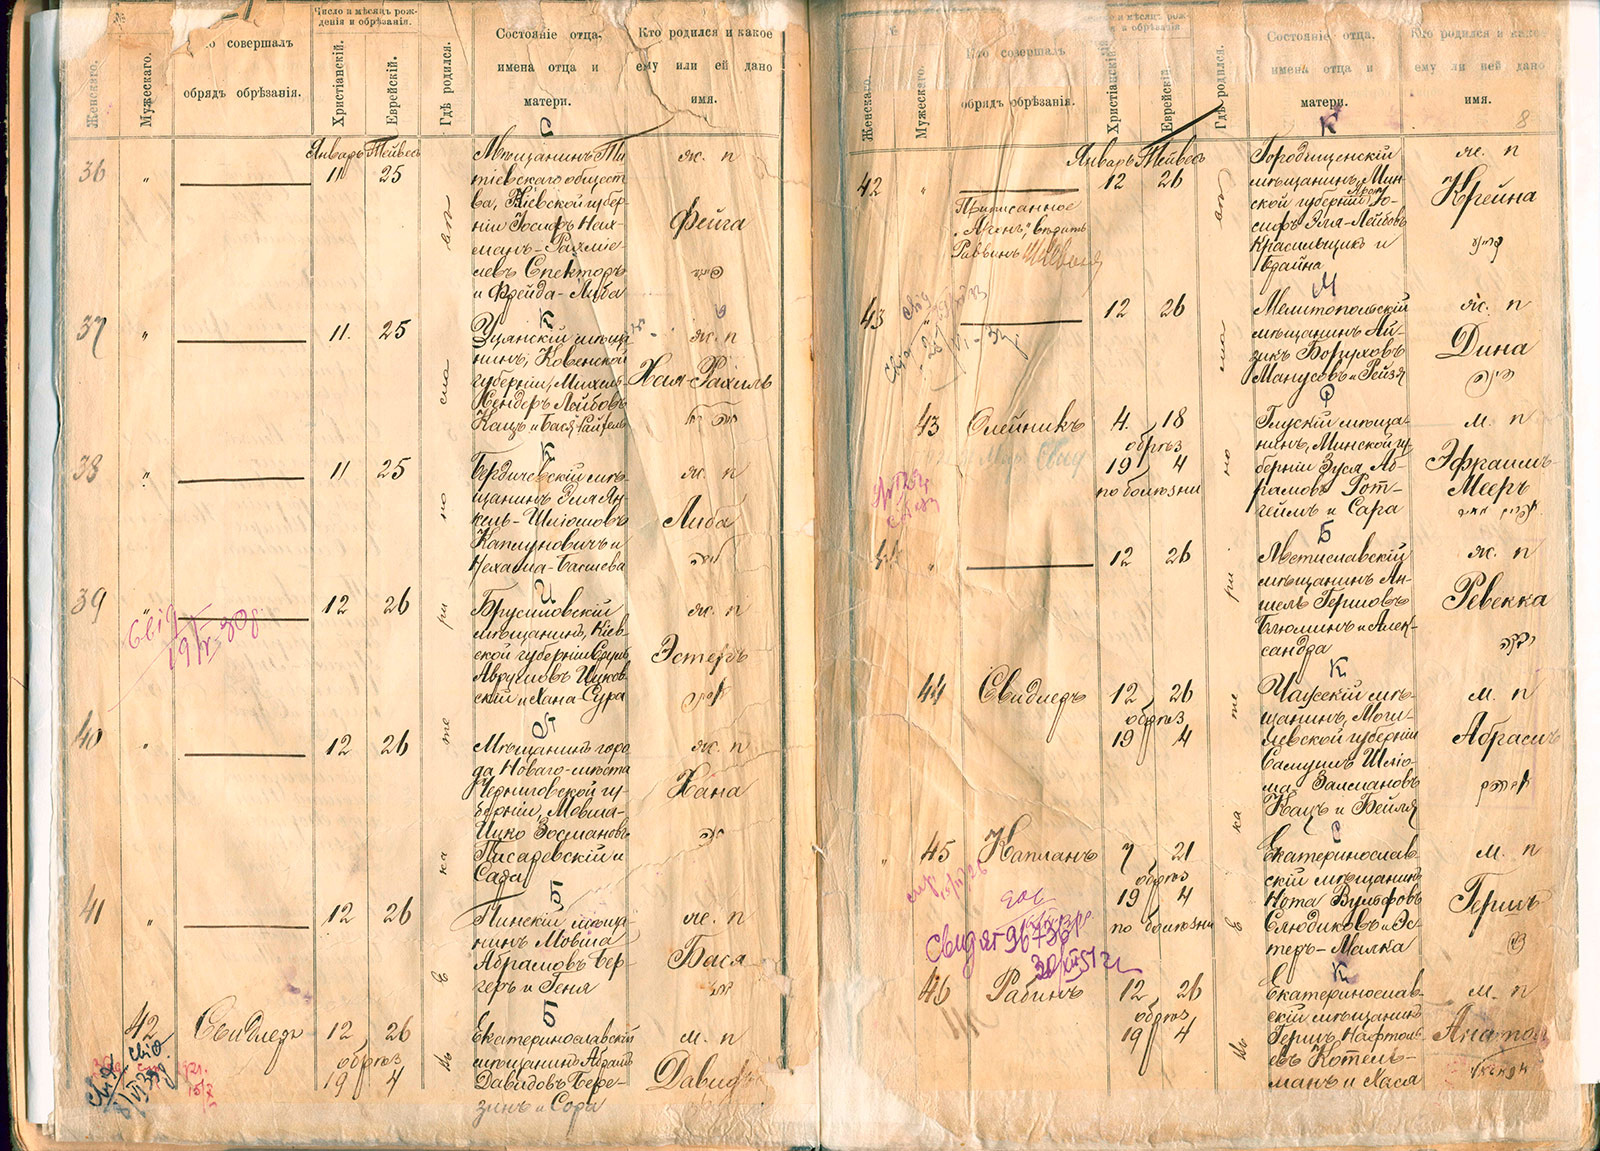 Женскаго.
Мужескаго.
Кто совершалъ
обрядъ обрѣзанія.
Число и мѣсяц. рож-
денія и обрѣзанія.
Христіанскій.
Еврейскій.
Гдѣ родился.
Состояніе отца,
имена отца и
матери.
Кто родился и какое
ему или ей дано
имя.
Январь Тейвесъ
36 " 11 25
С
Мѣщанинъ Ти-
тіевскаго общест
ва, Кіевской губер-
ніи Іосифъ Нех-
манъ-Рахміе
левъ Спекторъ
и Фрейда-Либа
ж. п
Фейга
37 " 11. 25
К
Уцянскій мѣща
нинъ, Ковенской
губерніи, Михель-
Кендеръ Лейбовъ
Кацъ и Бася Райхель
ж. п
Хая-Рахиль
38 " 11 25
К
Бердичевскій мѣ-
щанинъ Эля Ян-
кель-Шліомовъ
Каплуновичъ и
Нехама-Басшева
ж. п
Либа
39 " 12 26
Свід
Брусиловскій
мѣщанинъ, Кіев-
ской губерніи Сруль
Аврумовъ Цуков-
скій и Хана Сура
ж. п
Эстеръ
40 " 12 26
Мѣщанинъ горо
да Новаго-мѣста
Черниговской гу-
берніи, Мовша-
Ицко Зосмановъ
Писаревскій и
Сара
ж. п
Хана
41 " 12 26
Б
Пинскій мѣща-
нинъ Мовша
Абрамовъ Бер-
геръ и Геня
ж. п
Бася
42 Свидлеръ 12 26
обрѣз
19 4
Б
Екатеринославскій
мѣщанинъ Абрамъ
Давидовъ Бере-
зинъ и Сора
м. п
Давидъ
въ Екатеринославѣ
Женскаго.
Мужескаго.
Кто совершалъ
обрядъ обрѣзанія.
Христіанскій
Еврейскій.
Гдѣ родился.
Состояніе отца,
имена отца и
матери.
Кто родился и какое
ему ли ней дано
имя.
8
Январь Тейвесъ
42 " 12 26
Приписанное
"Аронъ", вѣрить
Раввинъ
К
Городищенскій
мѣщанинъ, Мин-
ской губерніи Іо-
сифъ Эля-Лейбовъ
Красильщикъ и
Брайна
ж. п
Крейна
43 12 26
М
Мелитопольскій
мѣщанинъ Ай-
зикъ Боруховъ
Манусовъ и Рейзя
ж. п
Дина
דינה
43 Олейникъ 4. 18
обрѣз
19 4
по болѣзни
Р
Глускій мѣща-
нинъ, Минской гу
берніи Зуся Аб-
рамовъ Рот-
геймъ и Сара
м. п
Эфраимъ-
Мееръ
אפרים מאיר
44 " 12 26
Б
Мстиславскій
мѣщанинъ Ан-
шель Гершовъ
Блюминъ и Алек-
сандра
ж. п
Ревекка
רבקה
44 Свидлеръ 12 26
обрѣз
19 4
К
Чаусскій мѣ-
щанинъ, Моги-
левской губерніи
Самуилъ Шліо-
ма Залмановъ
Кацъ и Бейля
м. п
Абрамъ
אברהם
45 Капланъ 7 21
обрѣз
19 4
по болѣзни
С
Екатеринослав-
скій мѣщанинъ
Нота Вульфовъ
Слюдиковъ и Эс-
теръ-Малка
м. п
Гершъ
46 Рабинъ 12 26
обрѣз
19 4
К
Екатеринослав-
скій мѣщанинъ
Гершъ Нафтоль
евъ Котель-
манъ и Хася
м. п
Анатол